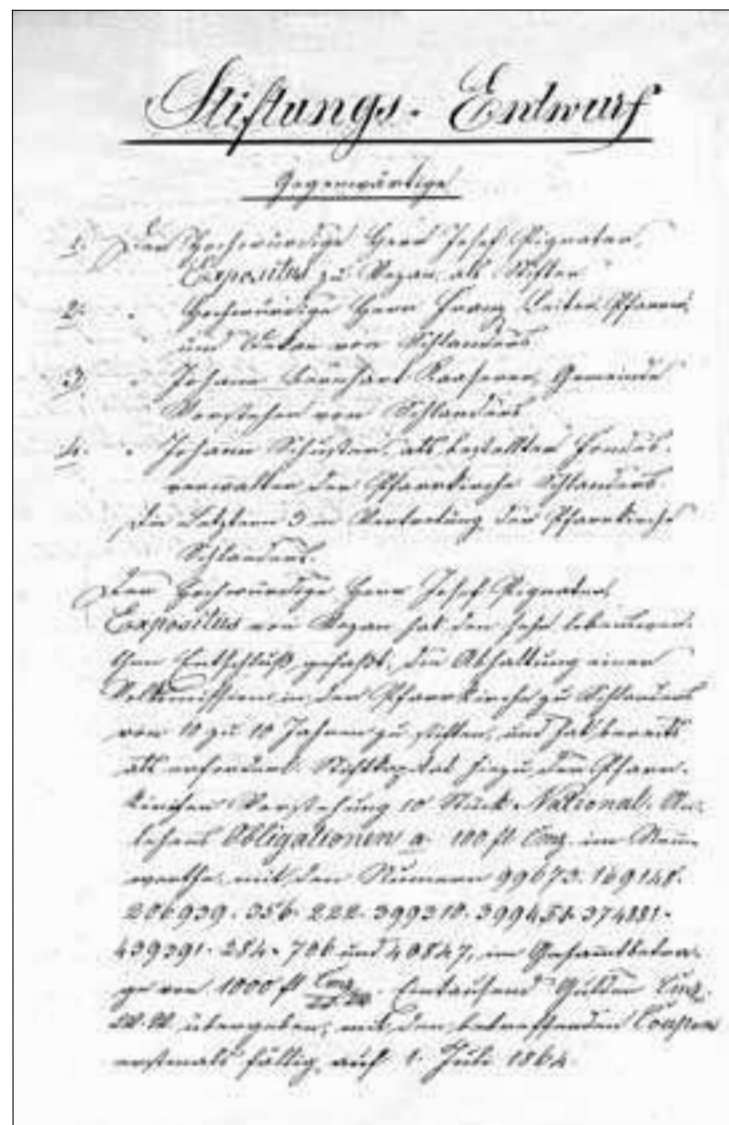 Stiftungs-Entwurf
Gegenwärtige
1. Der Hochwürdige Herr Josef Pignater,
Expositus zu Vezan als Stifter
2. " Hochwürdige Herr Franz Pfarrer
und Dekan von Schlanders.
3. " Johann Bernhart Kaaserer, Gemeinde
Vorsteher von Schlanders
4. " Johann Schuster, als bestellter Fonds-
verwalter der Pfarrkirche Schlanders.
Die Letztern 3 in Vertretung der Pfarrkirche
Schlanders.
Der Hochwürdige Herr Josef Pignater
Expositus von Vezan hat den sehr
Entschluß gefaßt, die Abhaltung einer
Volksmission in der Pfarrkirche zu Schlanders
von 10 zu 10 Jahren zu stiften, und hat bereits
als erforderl. Stiftkapital hiezu der Pfarr-
kirchen Vorstehung 10 Stück National-An-
lehens Obligationen a 100 fl Cmz. im Nenn-
werthe mit den Numern 99673. 169148.
206939. 356. 222. 399310. 399451. 374881.
439391. 284. 706 und 40847, im Gesamtbetra-
ge von 1000 fl Cmz. Eintausend Gulden Cmz.
übergeben, mit den betreffenden Coupons
erstmals fällig auf 1. Juli 1864.